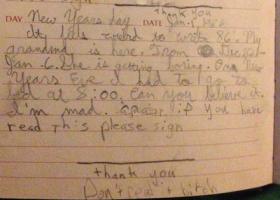 thank you
DAY New Years day DATE Jan. 1 1986
ity has weird to write 86. My
grandma is here. From Dec 26th
Jan 6. She is getting boring. On New
Years Eve I had to go to
bed at 8:00. Can you believe it.
I'm mad. if you have
read this please sign
thank you
Don't read it bitch